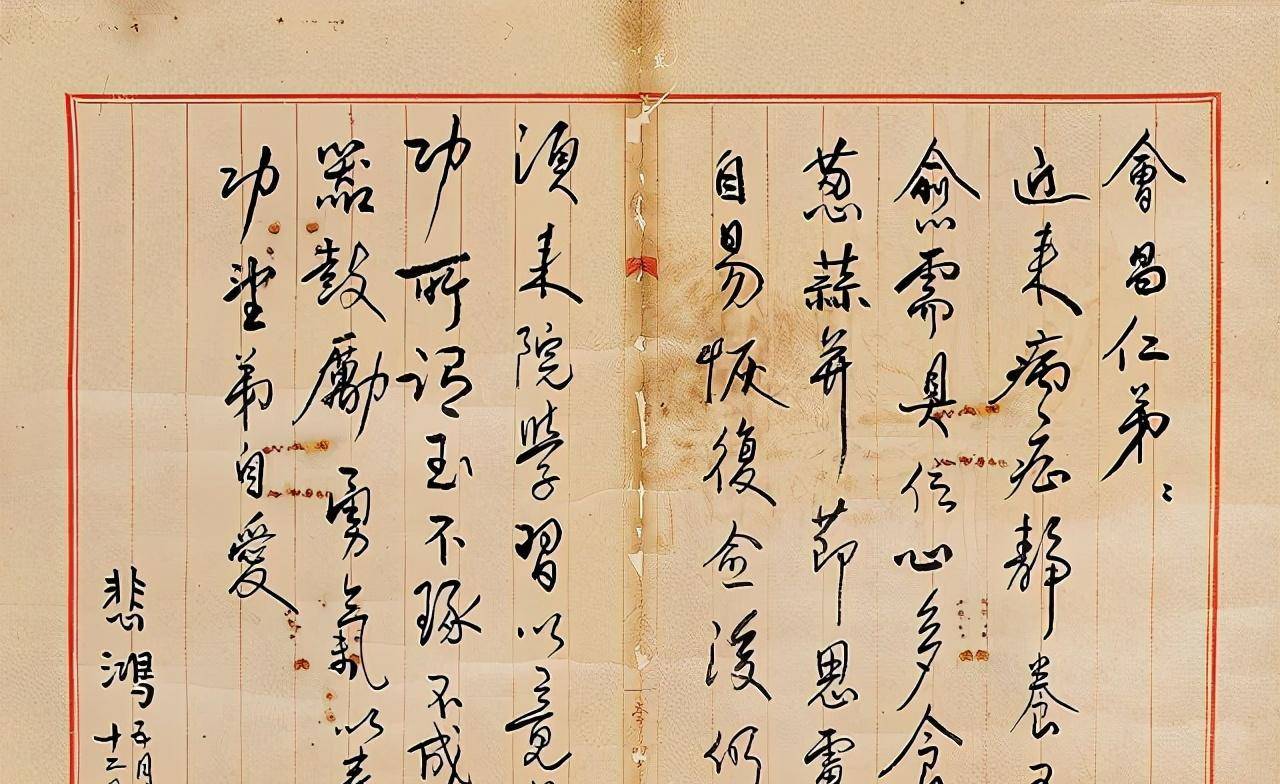 會昌仁弟：
近来病症静養
愈需具信心多食
葱蒜並节思
自易恢復愈後仍
須来院學習以竟
功所谓玉不琢不成
器鼓勵勇氣以
功望弟自愛
悲鴻 五月
十二日